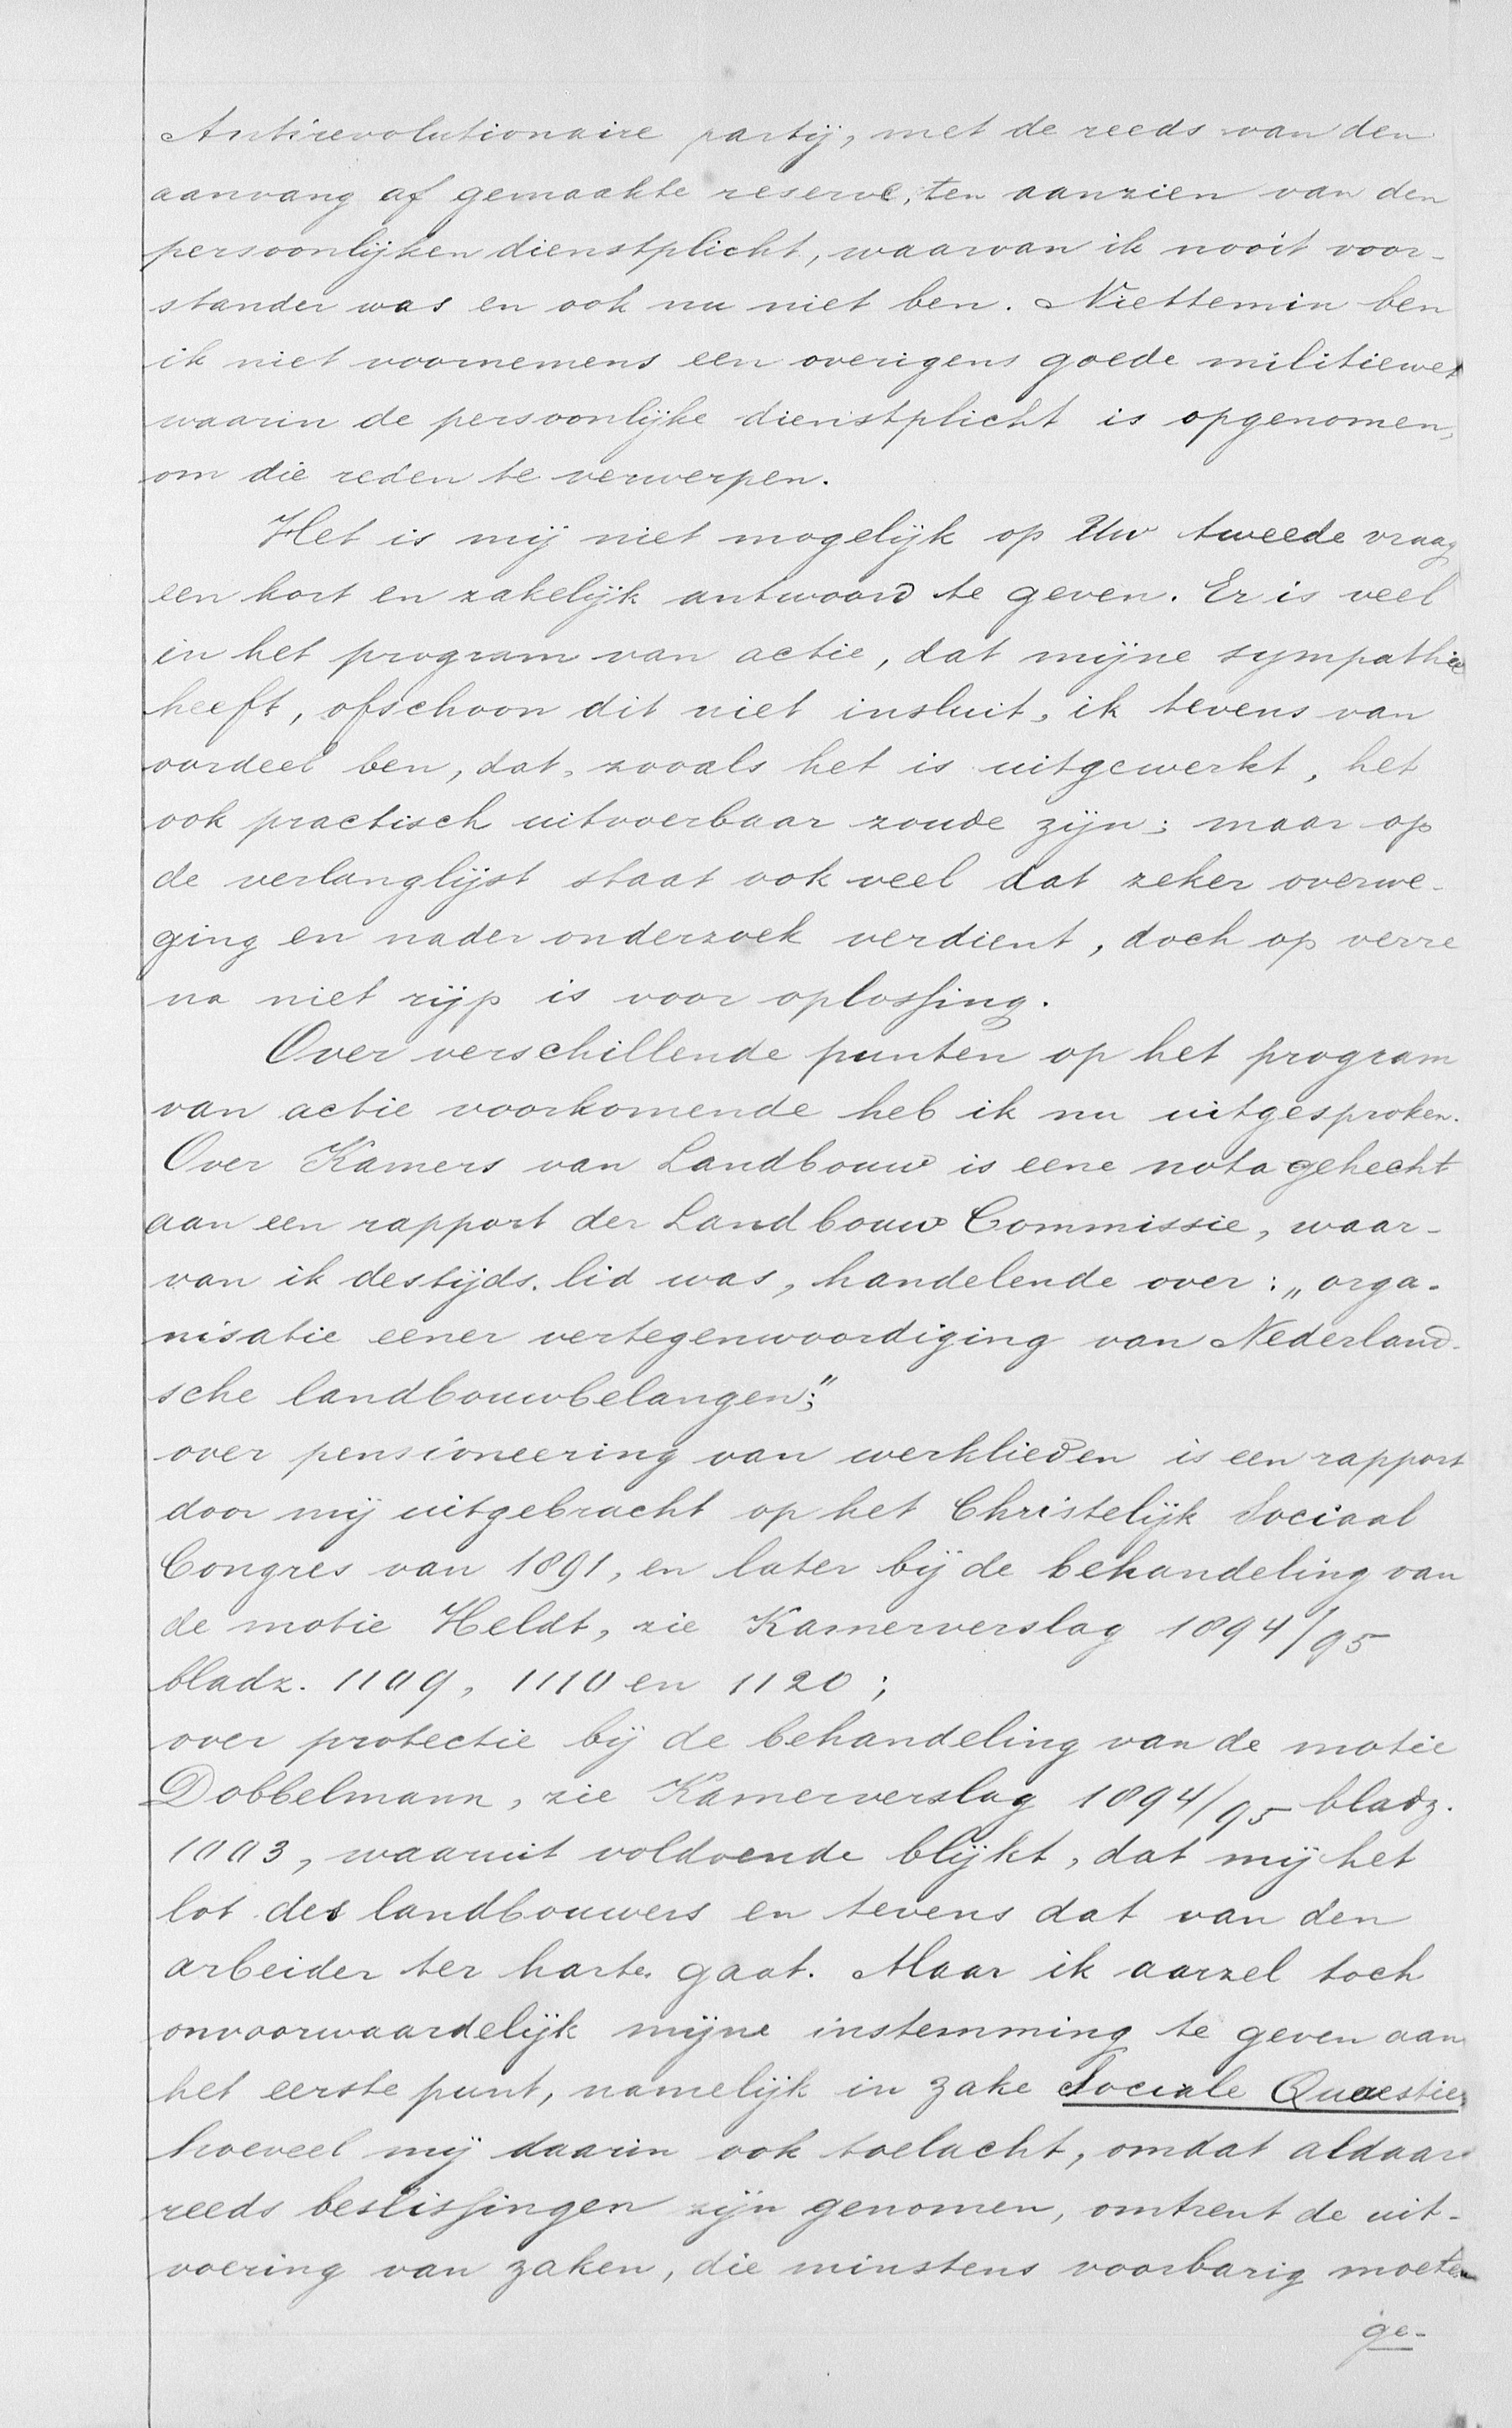 Antirevolutionaire partij, met de reeds van den
aanvang af gemaakte reserve, ten aanzien van den
persoonlijken dienstplicht, waarvan ik nooit voor-
stander was en ook nu niet ben. Niettemin ben
ik niet voornemens een overigens goede militiewet
waarin de persoonlijke dienstplicht is opgenomen,
om die reden te verwerpen.
Het is mij niet mogelijk op Uw tweede vraag
een kort en zakelijk antwoord te geven. Er is veel
in het program van actie, dat mijne sympathie
heeft, ofschoon dit niet insluit, ik tevens van
oordeel ben, dat, zooals het is uitgewerkt, het
ook practisch uitvoerbaar zoude zijn; maar op
de verlanglijst staat ook veel dat zeker overwe-
ging en nader onderzoek verdient, doch op verre
na niet rijp is voor oplossing.
Over verschillende punten op het program
van actie voorkomende heb ik nu uitgesproken.
Over Kamers van Landbouw is eene nota gehecht
aan een rapport der Landbouw Commissie, waar-
van ik destijds lid was, handelende over: „orga-
nisatie eener vertegenwoordiging van Nederland-
sche landbouwbelangen";
over pensioneering van werklieden is een rapport
door mij uitgebracht op het Christelijk Sociaal
Congres van 1891, en later bij de behandeling van
de motie Heldt, zie Kamerverslag 1894/95
bladz. 1109, 1110 en 1120;
over protectie bij de behandeling van de motie
Dobbelmann, zie Kamerverslag 1894/95 bladz.
1003, waaruit voldoende blijkt, dat mij het
lot des landbouwers en tevens dat van den
arbeider ter harte gaat. Maar ik aarzel toch
onvoorwaardelijk mijne instemming te geven aan
het eerste punt, namelijk in zake Sociale Quaestie,
hoeveel mij daarin ook toelacht, omdat aldaar
reeds beslissingen zijn genomen, omtrent de uit-
voering van zaken, die minstens voorbarig moeten
ge-